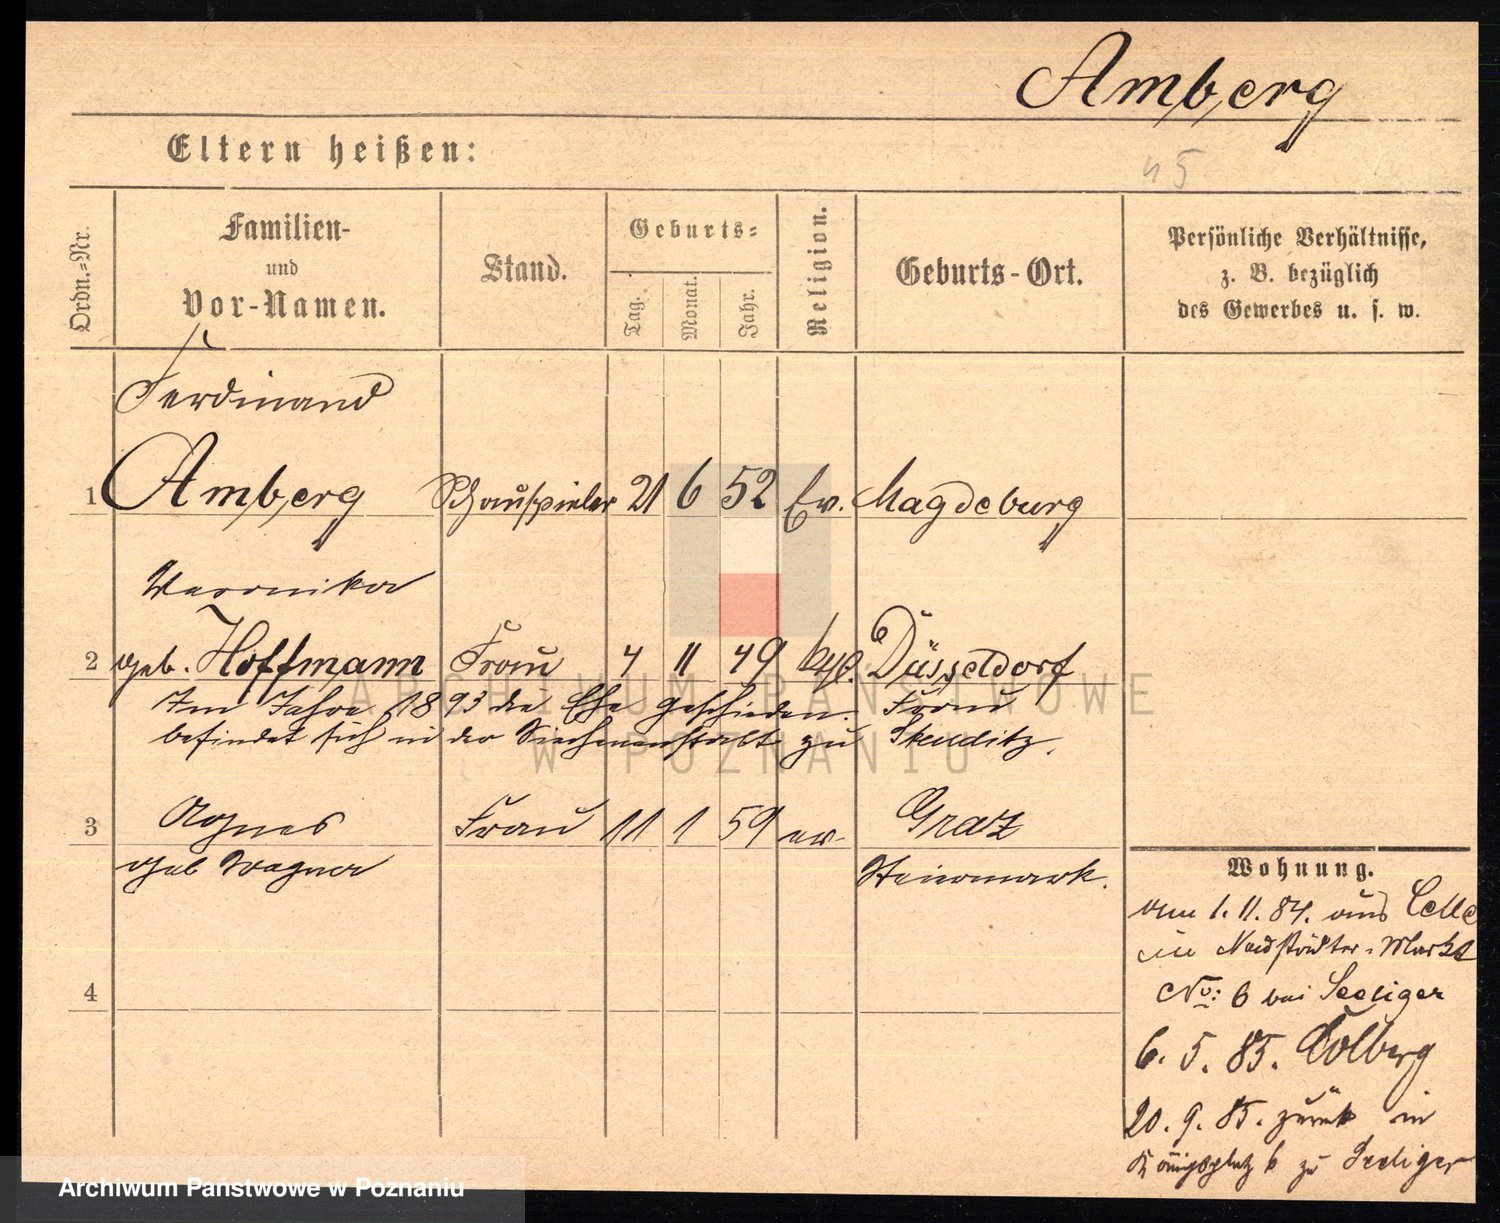 Amberg
Eltern heißen:
45
Ordn.-Nr.
Familien-
und
Vor-Namen.
Stand.
Geburts-
Tag.
Monat.
Jahr.
Religion.
Geburts-Ort.
Persönliche Verhältnisse,
z. B. bezüglich
des Gewerbes u. s. w.
Ferdinand
1 Amberg Schauspieler 21 6 52 Ev. Magdeburg
Veronika
2 geb. Hoffmann Frau 4 11 49 kath. Düsseldorf
Im Jahre 1893 die Ehe geschieden. Frau
befindet sich in der Siechenanstalt zu Skeuditz.
3 Agnes Frau 11 1 59 ev. Graz
geb Wagner Steiermark.
4
Wohnung.
vom 1. 11. 84. aus Celle
in Neustädter-Markt
No: 6 bei Seeliger
6. 5. 85. Colberg
20. 9. 85. zurück in
Königsplatz 6 zu Seeliger
ARCHIWUM PAŃSTWOWE
W POZNANIU
Archiwum Państwowe w Poznaniu